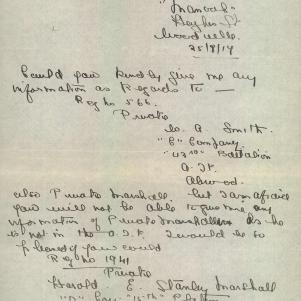 "Manoah"
Hughes St
Woodville
25/8/19
Could you kindly give me any
information as Regards to —
Reg No 566.
Private
A. Smith.
"C" Company
"43rd" Battalion
A.I.F.
Abroad.
also Private Marshall. but I am afraid
you will not be able to give me any
information of Private Marshall as he
is not in the A.I.F. I would be so
pleased if you could
Reg No 1941
Private
Harold E. Stanley Marshall
"D" Coy